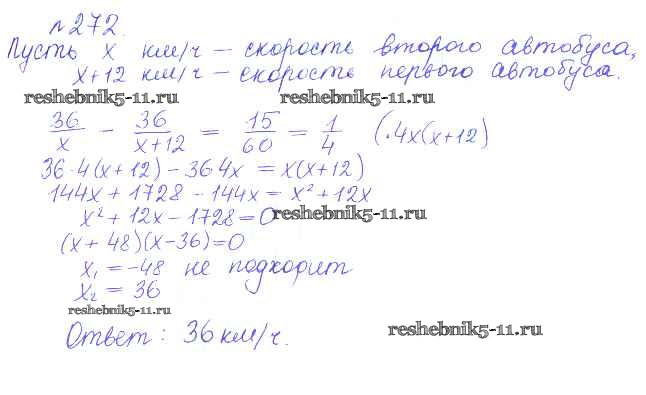 №272.
Пусть x км/ч – скорость второго автобуса,
x+12 км/ч – скорость первого автобуса.
reshebnik5-11.ru reshebnik5-11.ru
36/x − 36/(x+12) = 15/60 = 1/4 (·4x(x+12)
36·4(x+12) − 36 4x = x(x+12)
144x + 1728 − 144x = x² + 12x
x² + 12x − 1728 = 0 reshebnik5-11.ru
(x + 48)(x − 36) = 0
x₁ = −48 не подходит
x₂ = 36
reshebnik5-11.ru
Ответ: 36 км/ч. reshebnik5-11.ru